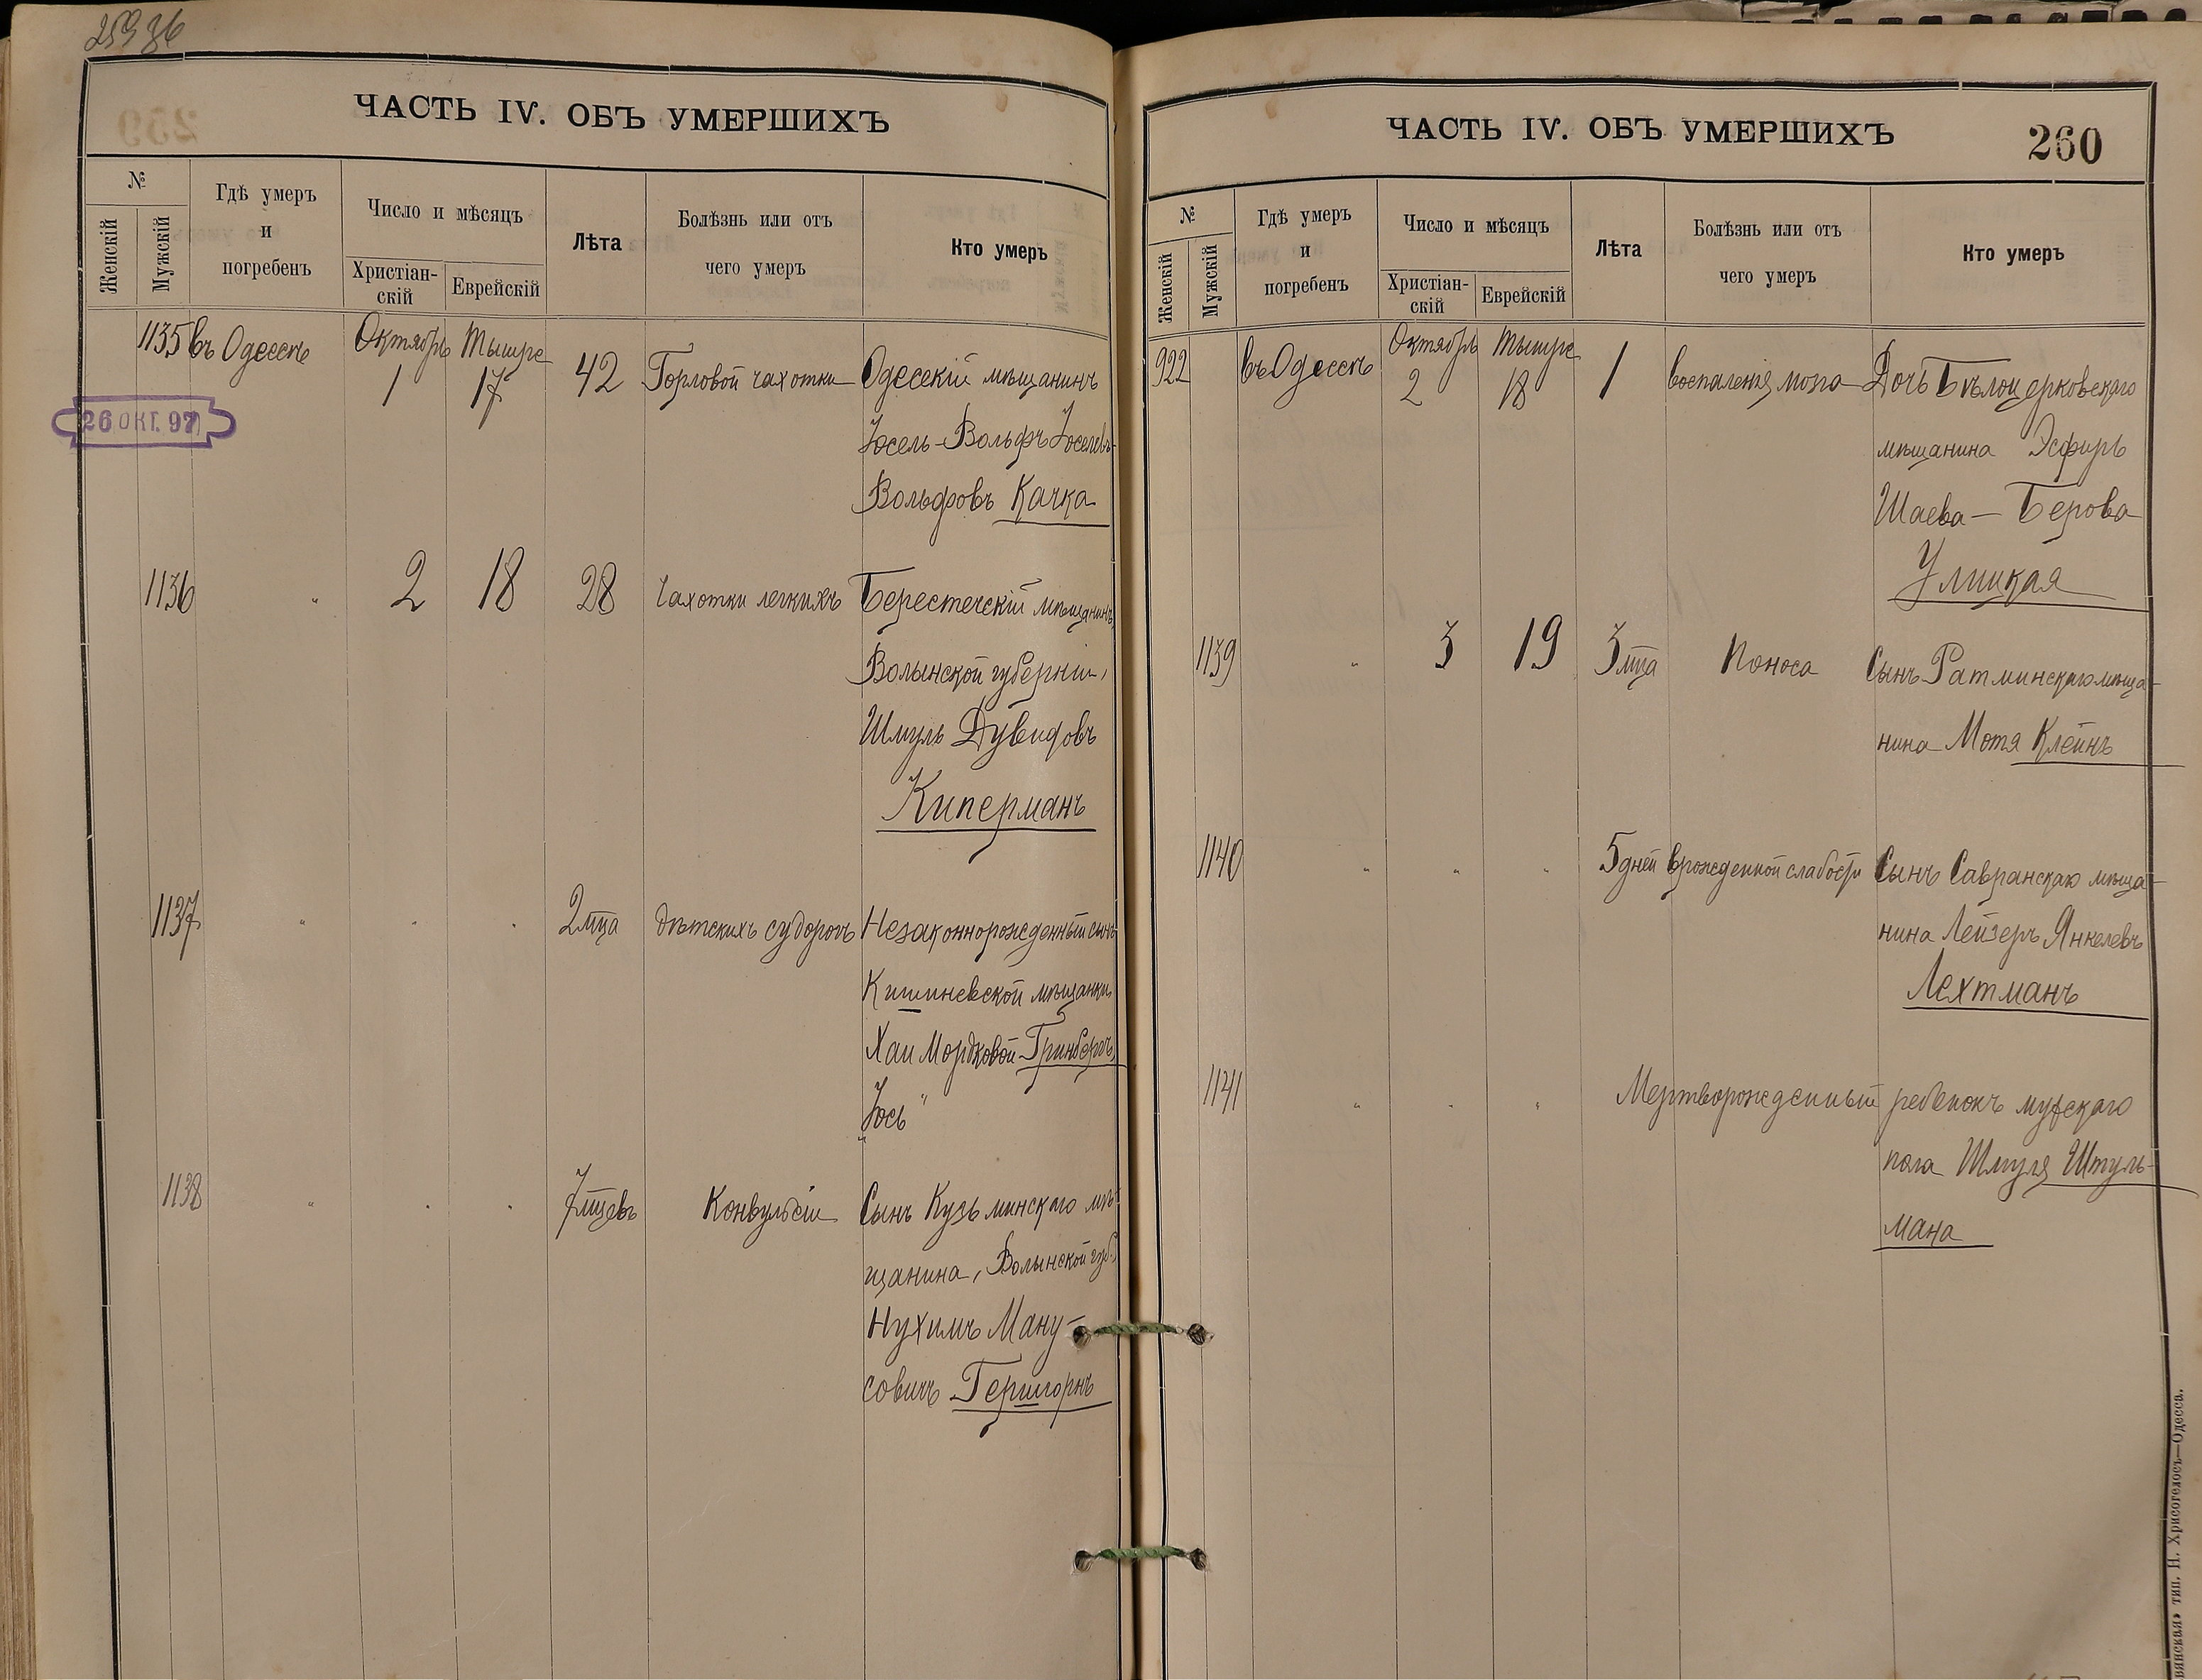 259 об
ЧАСТЬ IV. ОБЪ УМЕРШИХЪ
№
Женскій
Мужскій
Гдѣ умеръ
и
погребенъ
Число и мѣсяцъ
Христіан-
скій
Еврейскій
Лѣта
Болѣзнь или отъ
чего умеръ
Кто умеръ
1135 въ Одессѣ Октябрь Тышре
1 17 42 Горловой чахотки Одесскій мѣщанинъ
26 ОКТ. 97
Іосель-Вольфъ Іоселевъ-
Вольфовъ Качка
1136 " 2 18 28 Чахотки легкихъ Берестечскій мѣщанинъ,
Волынской губерніи,
Шмуль Дувидовъ
Киперманъ
1137 " " " 2 мца дѣтскихъ судорогъ Незаконнорожденный сынъ
Кишиневской мѣщанки
Хаи Мордковой Гринбергъ,
"Іось"
1138 " " " 7 мцевъ Конвульсіи Сынъ Кузьминскаго мѣ-
щанина, Волынской губ.,
Нухимъ Ману-
совичъ Гершгорнъ
ЧАСТЬ IV. ОБЪ УМЕРШИХЪ
260
№
Женскій
Мужскій
Гдѣ умеръ
и
погребенъ
Число и мѣсяцъ
Христіан-
скій
Еврейскій
Лѣта
Болѣзнь или отъ
чего умеръ
Кто умеръ
922 въ Одессѣ Октябрь Тышре
2 18 1 воспаленія мозга Дочь Бѣлоцерковскаго
мѣщанина Эсфирь
Шаева-Берова
Улицкая
1139 " 3 19 3 мца Поноса Сынъ Ратминскаго мѣща-
нина Мотя Клейнъ
1140 " " " 5 дней врожденной слабости Сынъ Савранскаго мѣща-
нина Лейзеръ Янкелевъ
Лехтманъ
1141 " " " Мертворожденный ребенокъ мужскаго
пола Шмуля Штуль-
мана
тип. Н. Хрисогелосъ—Одесса.